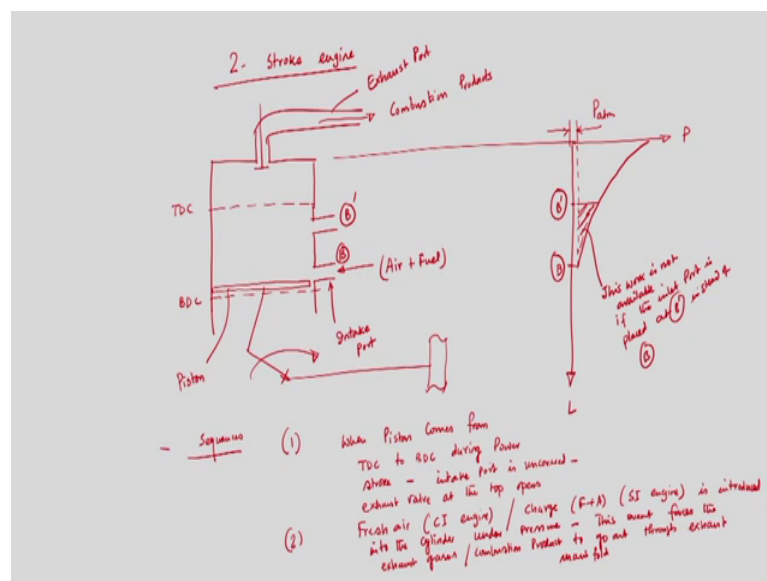 2- Stroke engine
Exhaust Port
Combustion Products
TDC
B'
B
(Air + Fuel)
BDC
Intake
Port
Piston
Patm
P
B'
B
This work is not
available
if the inlet Port is
placed at B' instead of
B
L
- Sequences (1) When Piston Comes from
TDC to BDC during Power
stroke - intake port is uncovered -
exhaust valve at the top opens
(2) Fresh air (CI engine) / Charge (F+A) (SI engine) is introduced
into the cylinder under pressure - This event forces the
exhaust gases / combustion Product to go out through exhaust
manifold